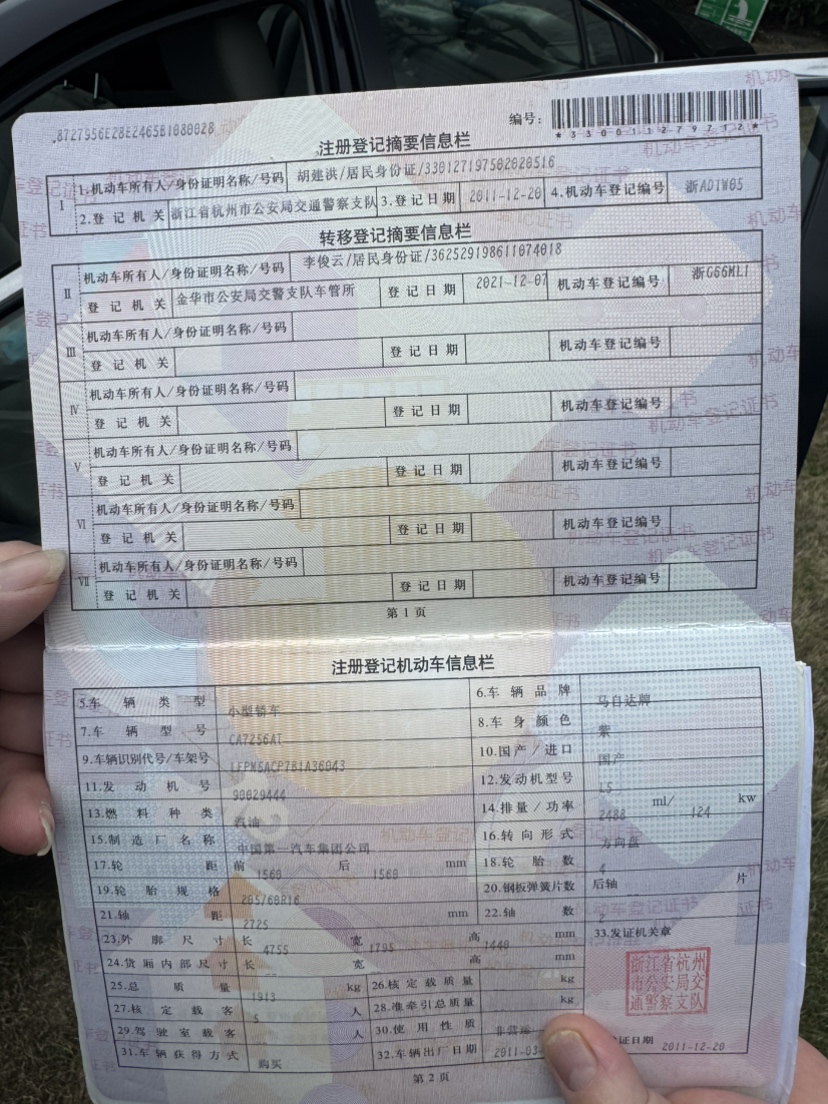 .8727956E28E2465B1080028
编号：
*330011279712*
注册登记摘要信息栏
I 1.机动车所有人/身份证明名称/号码 胡建洪/居民身份证/330127197502020516
2.登记机关 浙江省杭州市公安局交通警察支队 3.登记日期 2011-12-20 4.机动车登记编号 浙AD1W05
转移登记摘要信息栏
II 机动车所有人/身份证明名称/号码 李俊云/居民身份证/362529198611074018
登记机关 金华市公安局交警支队车管所 登记日期 2021-12-07 机动车登记编号 浙G66ML1
III 机动车所有人/身份证明名称/号码
登记机关 登记日期 机动车登记编号
IV 机动车所有人/身份证明名称/号码
登记机关 登记日期 机动车登记编号
V 机动车所有人/身份证明名称/号码
登记机关 登记日期 机动车登记编号
VI 机动车所有人/身份证明名称/号码
登记机关 登记日期 机动车登记编号
VII 机动车所有人/身份证明名称/号码
登记机关 登记日期 机动车登记编号
第1页
注册登记机动车信息栏
5.车辆类型 小型轿车 6.车辆品牌 马自达牌
7.车辆型号 CA7256AT 8.车身颜色 紫
9.车辆识别代号/车架号 LFPM5ACP7B1A36043 10.国产/进口 国产
11.发动机号 90029444 12.发动机型号 L5
13.燃料种类 汽油 14.排量/功率 2488 ml/ 124 kw
15.制造厂名称 中国第一汽车集团公司 16.转向形式 方向盘
17.轮距 前 1560 后 1560 mm 18.轮胎数 4
19.轮胎规格 205/60R16 20.钢板弹簧片数 后轴 片
21.轴距 2725 mm 22.轴数 2
23.外廓尺寸 长 4755 宽 1795 高 1440 mm 33.发证机关章
24.货厢内部尺寸 长 宽 高 mm
25.总质量 1913 kg 26.核定载质量 kg
27.核定载客 5 人 28.准牵引总质量 kg
29.驾驶室载客 人 30.使用性质 非营运
31.车辆获得方式 购买 32.车辆出厂日期 2011-03-
浙江省杭州
市公安局交
通警察支队
证日期 2011-12-20
第2页